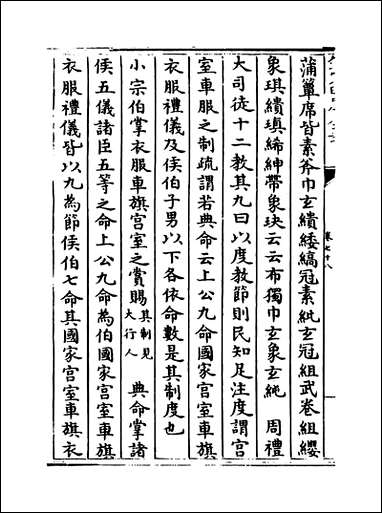 蒲簟席皆素斧巾玄繢緌縞冠素紕玄冠組武卷組纓
象琪繢瑱絺紳帶象玦云云布獨巾玄象玄純 周禮
大司徒十二教其九曰以度教節則民知足注度謂宮
室車服之制疏謂若典命云上公九命國家宮室車旗
衣服禮儀及侯伯子男以下各依命數是其制度也
小宗伯掌衣服車旗宮室之賞賜其制見大行人 典命掌諸
侯五儀諸臣五等之命上公九命為伯國家宮室車旗
衣服禮儀皆以九為節侯伯七命其國家宮室車旗衣
卷七十八